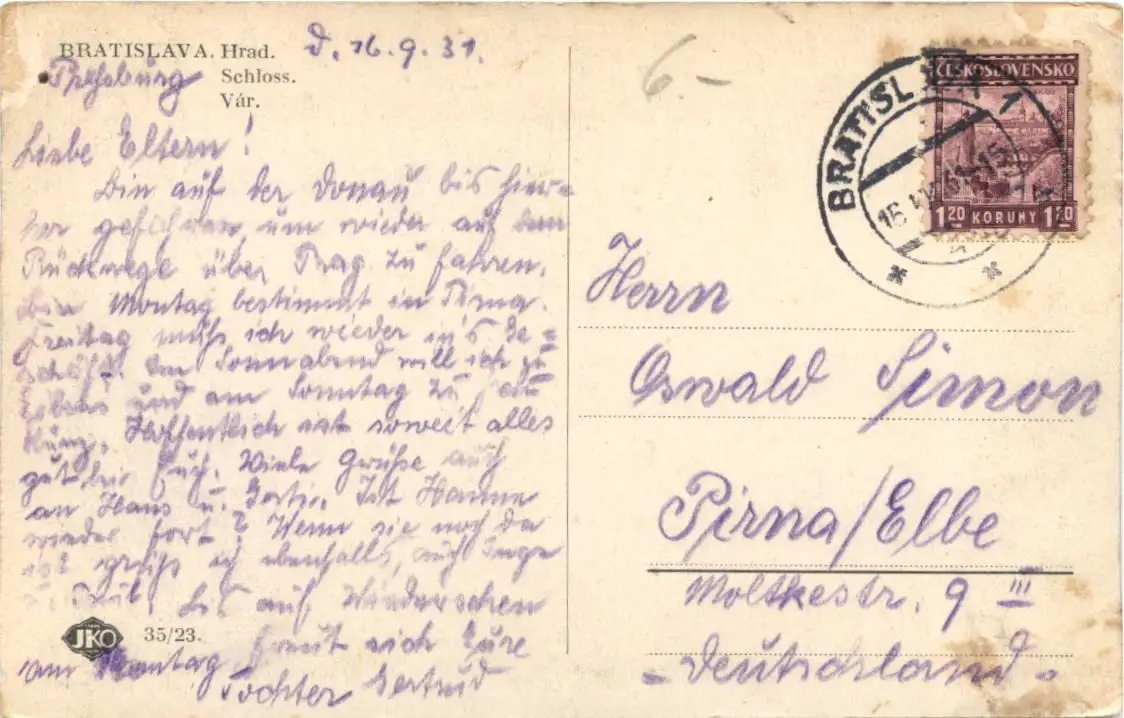 BRATISLAVA. Hrad.
Schloss.
Vár.
Preßburg
d. 16.9.31.
Liebe Eltern!
Bin auf der Donau bis hier-
her gefahren, um wieder auf dem
Rückwege über Prag zu fahren.
bin Montag bestimmt in Pirna.
Freitag muß ich wieder in's Ge-
schäft. Am Sonnabend will ich zu
und am Sonntag zu
Hoffentlich ist soweit alles
gut bei Euch. Viele Grüße auch
an Hans u. Gerti. Ist Hanne
wieder fort? Wenn sie noch da
ist grüß ich ebenfalls, auch Inge
u. Bis auf Wiedersehen
am Montag freut sich Eure
Tochter Gertrud
JKO 35/23.
6.-
BRATISLAVA 1
ČESKOSLOVENSKO
1 20 KORUNY 1 20
Herrn
Oswald Simon
Pirna/Elbe
Moltkestr. 9 III
- Deutschland -